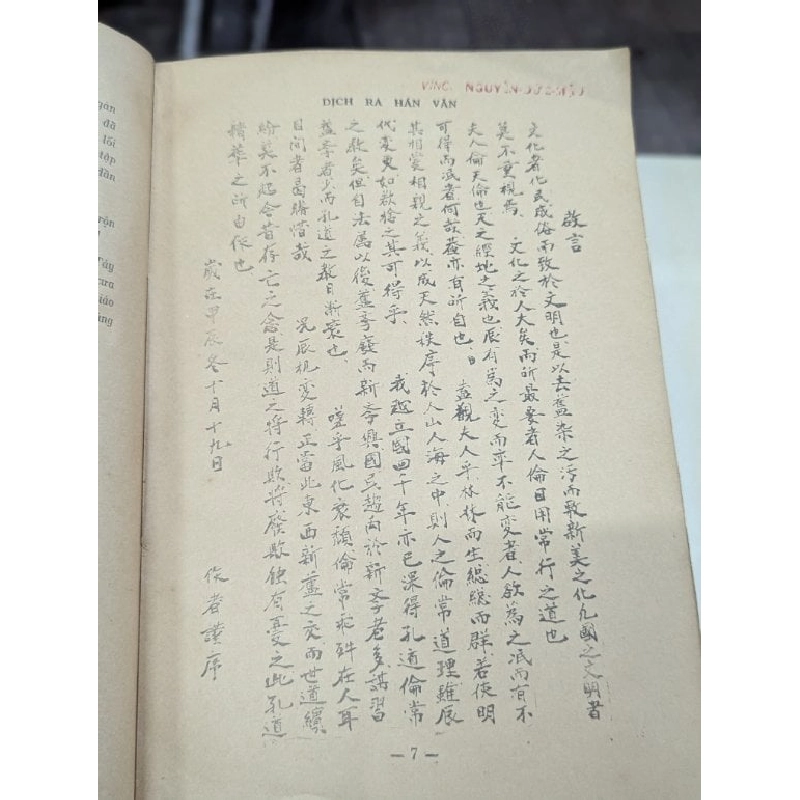 NGUYỄN
DỊCH RA HÁN VĂN
敬言
文化者化民成俗而致於文明也是以去舊染之污而致新美之化凡國之文明者
莫不重視焉 文化之於人大矣而所最要者人倫日用常行之道也
夫人倫天倫也天之經地之義也辰有為之變而卒不能變者人欲為之泯而有不
可得而泯者何哉蓋亦有所自也 盍觀夫人乎林林而生總總而群若使明
其相愛相親之義以成天然秩序於人山人海之中則人之倫常道理雖辰
代變更如欲捨之其可得乎 我越立國四千年亦已深得孔道倫常
之教矣但自法屬以後舊學廢而新學興國民趨向於新學者多講習
舊學者少而孔道之教日漸衰也 嗟乎風化衰頹倫常乖舛在人耳
目間者曷勝惜哉 況辰机變轉正當此東西新舊之交而世道續
紛莫不起今昔存亡之念是則道之將行欤將廢欤蚀有憂之此孔道
精華之所由作也
歲在甲辰冬十月十九日
作者謹序
— 7 —
gản
đã
lối
tập
Hán
Tây
xưa
giáo